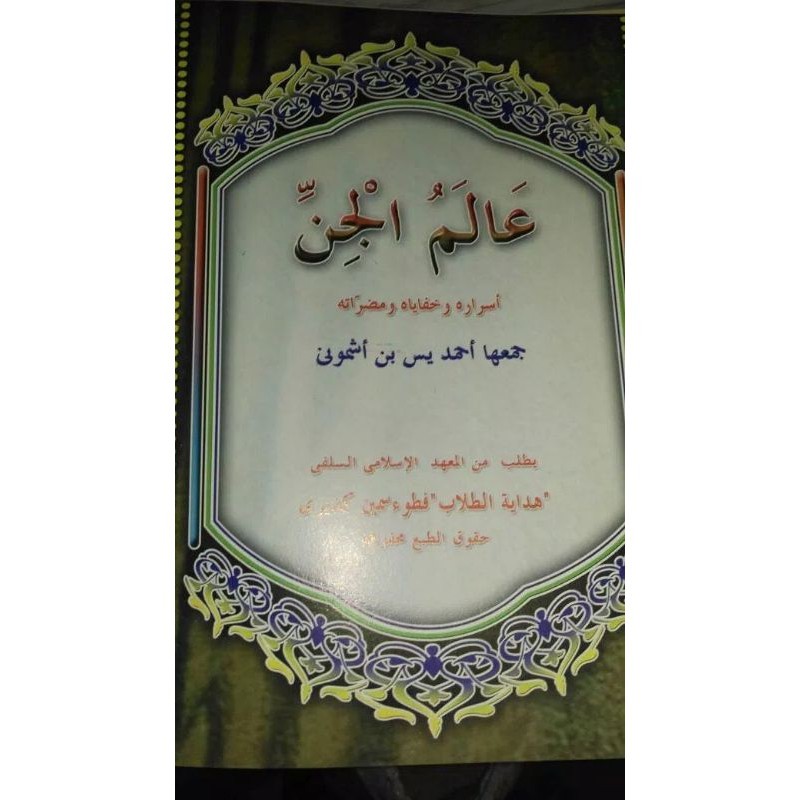 عَالَمُ الْجِنِّ
أسراره وخفاياه ومضرّاته
جمعها أحمد يس بن أشمونى
يطلب من المعهد الإسلامى السلفى
"هداية الطلاب" فطوء
حقوق الطبع